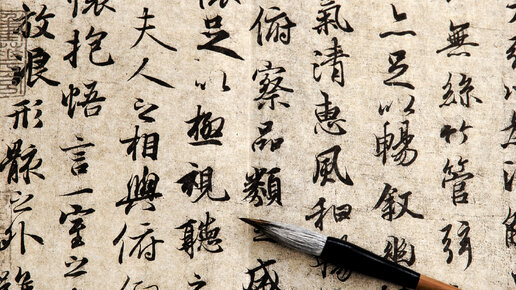 以為流
無絲竹管弦
亦足以暢敘幽
氣清惠風和暢
俯察品類之盛
懷足以極視聽之
夫人之相與俯
懷抱悟言一室之
放浪形骸之外雖